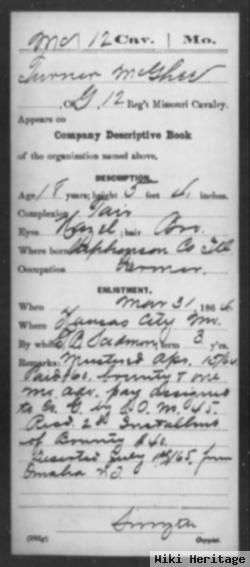 Mc 12 Cav. 1 Mo.
Turner McGhee
, Co. G, 12 Reg't Missouri Cavalry.
Appears on
Company Descriptive Book
of the organization named above.
DESCRIPTION.
Age 18 years; height 5 feet 4 inches.
Complexion Fair
Eyes Hazel; hair Bro.
Where born Stephenson Co Ill
Occupation Farmer.
ENLISTMENT.
When Mar 31, 1864.
Where Kansas City Mo.
By whom term 3 y'rs.
Remarks: Mustered Apr. 15/64
Paid $60. bounty & one
mo. adv. pay assigned
to Co. G by S.O. No. 45.
Recd. 2d Installmt
of Bounty $40.
Deserted July /65. from
Omaha N.T.
Smyth
Copyist.
Wiki Heritage